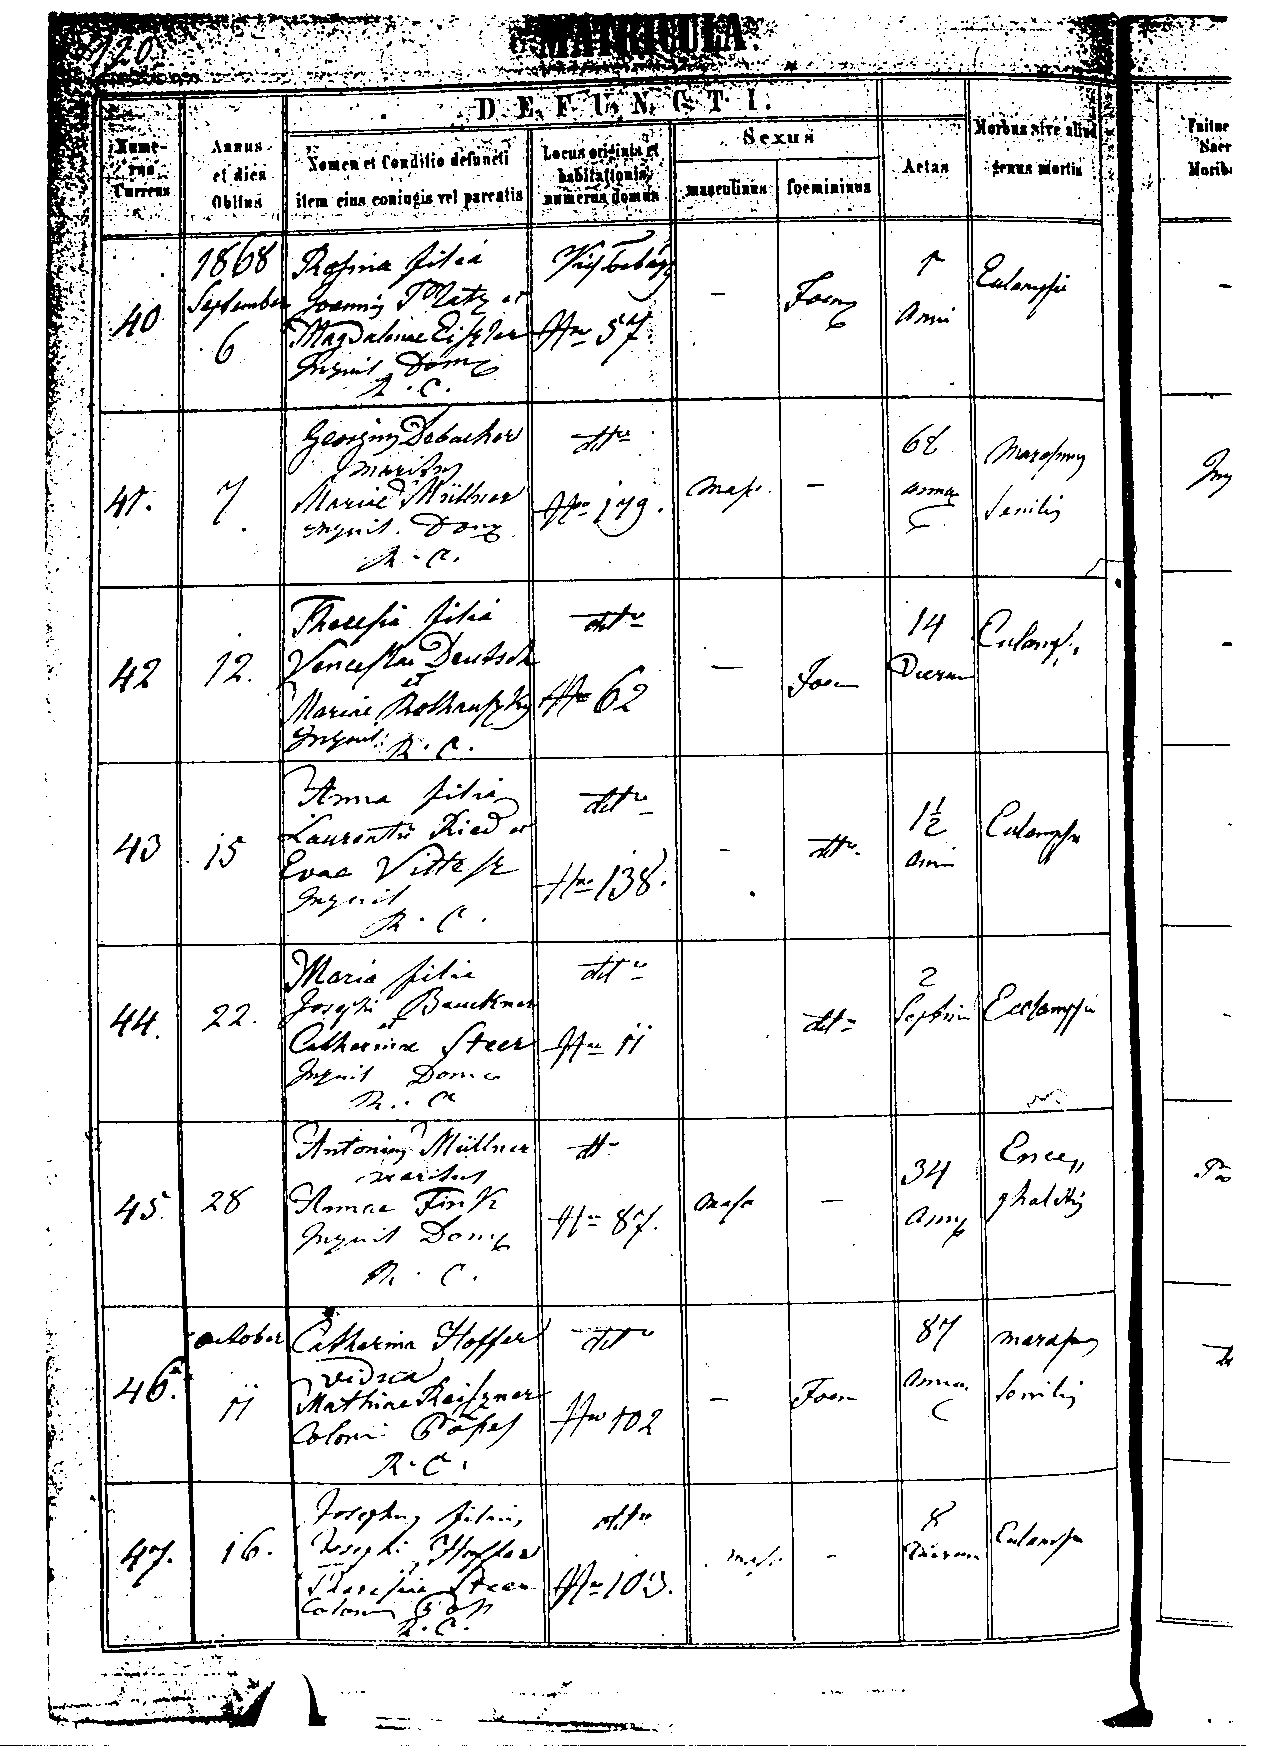 120
MATRICULA.
DEFUNCTI.
Nume-
rus
Currens
Annus
et dies
Obitus
Nomen et Conditio defuncti
item eius coniugis vel parentis
Locus originis et
habitationis,
numerus domus
Sexus
masculinus
foemininus
Aetas
Morbus sive aliud
genus mortis
40
1868
September
6
Rosina filia
Joannis Platz et
Magdalenae Eiszler
Inquil Dom
R. C.
Nro 57.
–
Foem
Anni
Eclampsia
41.
7.
Georgius
maritus
Mariae Müllner
inquil. Dom
R. C.
dtto
Nro 179.
Masc.
–
68
annor
Marasmus
senilis
42
12.
Theresia filia
Venceslai Deutsch
et
Mariae
Inquil. R. C.
dtto
Nro 62
–
Foem
14
Dierum
Eclamps.
43
15
Anna filia
Laurentii Ried et
Evae
Inquil
R. C.
dtto
Nro 138.
–
dtto.
1½
Anni
Eclampsia
44.
22.
Maria filia
Josephi
et
Catharinae Steer
Inquil Dom
R. C.
dtto
Nro 11
dtto
2
Septim
Ecclampsia
45.
28
Antonius Müllner
maritus
Annae Fink
Inquil Dom
R. C.
dtto
Nro 87.
Masc
–
34
Anno
46.
October
11
Catharina Hoffer
vidua
Mathiae
Coloni
R. C.
dtto
Nro 102
–
Foem
87
Annor
marasmus
senilis
47.
16.
Josephus filius
Josephi Hoffer
Theresiae Steer
Coloni
R. C.
dtto
Nro 103.
masc.
–
8
Dierum
Eclampsia